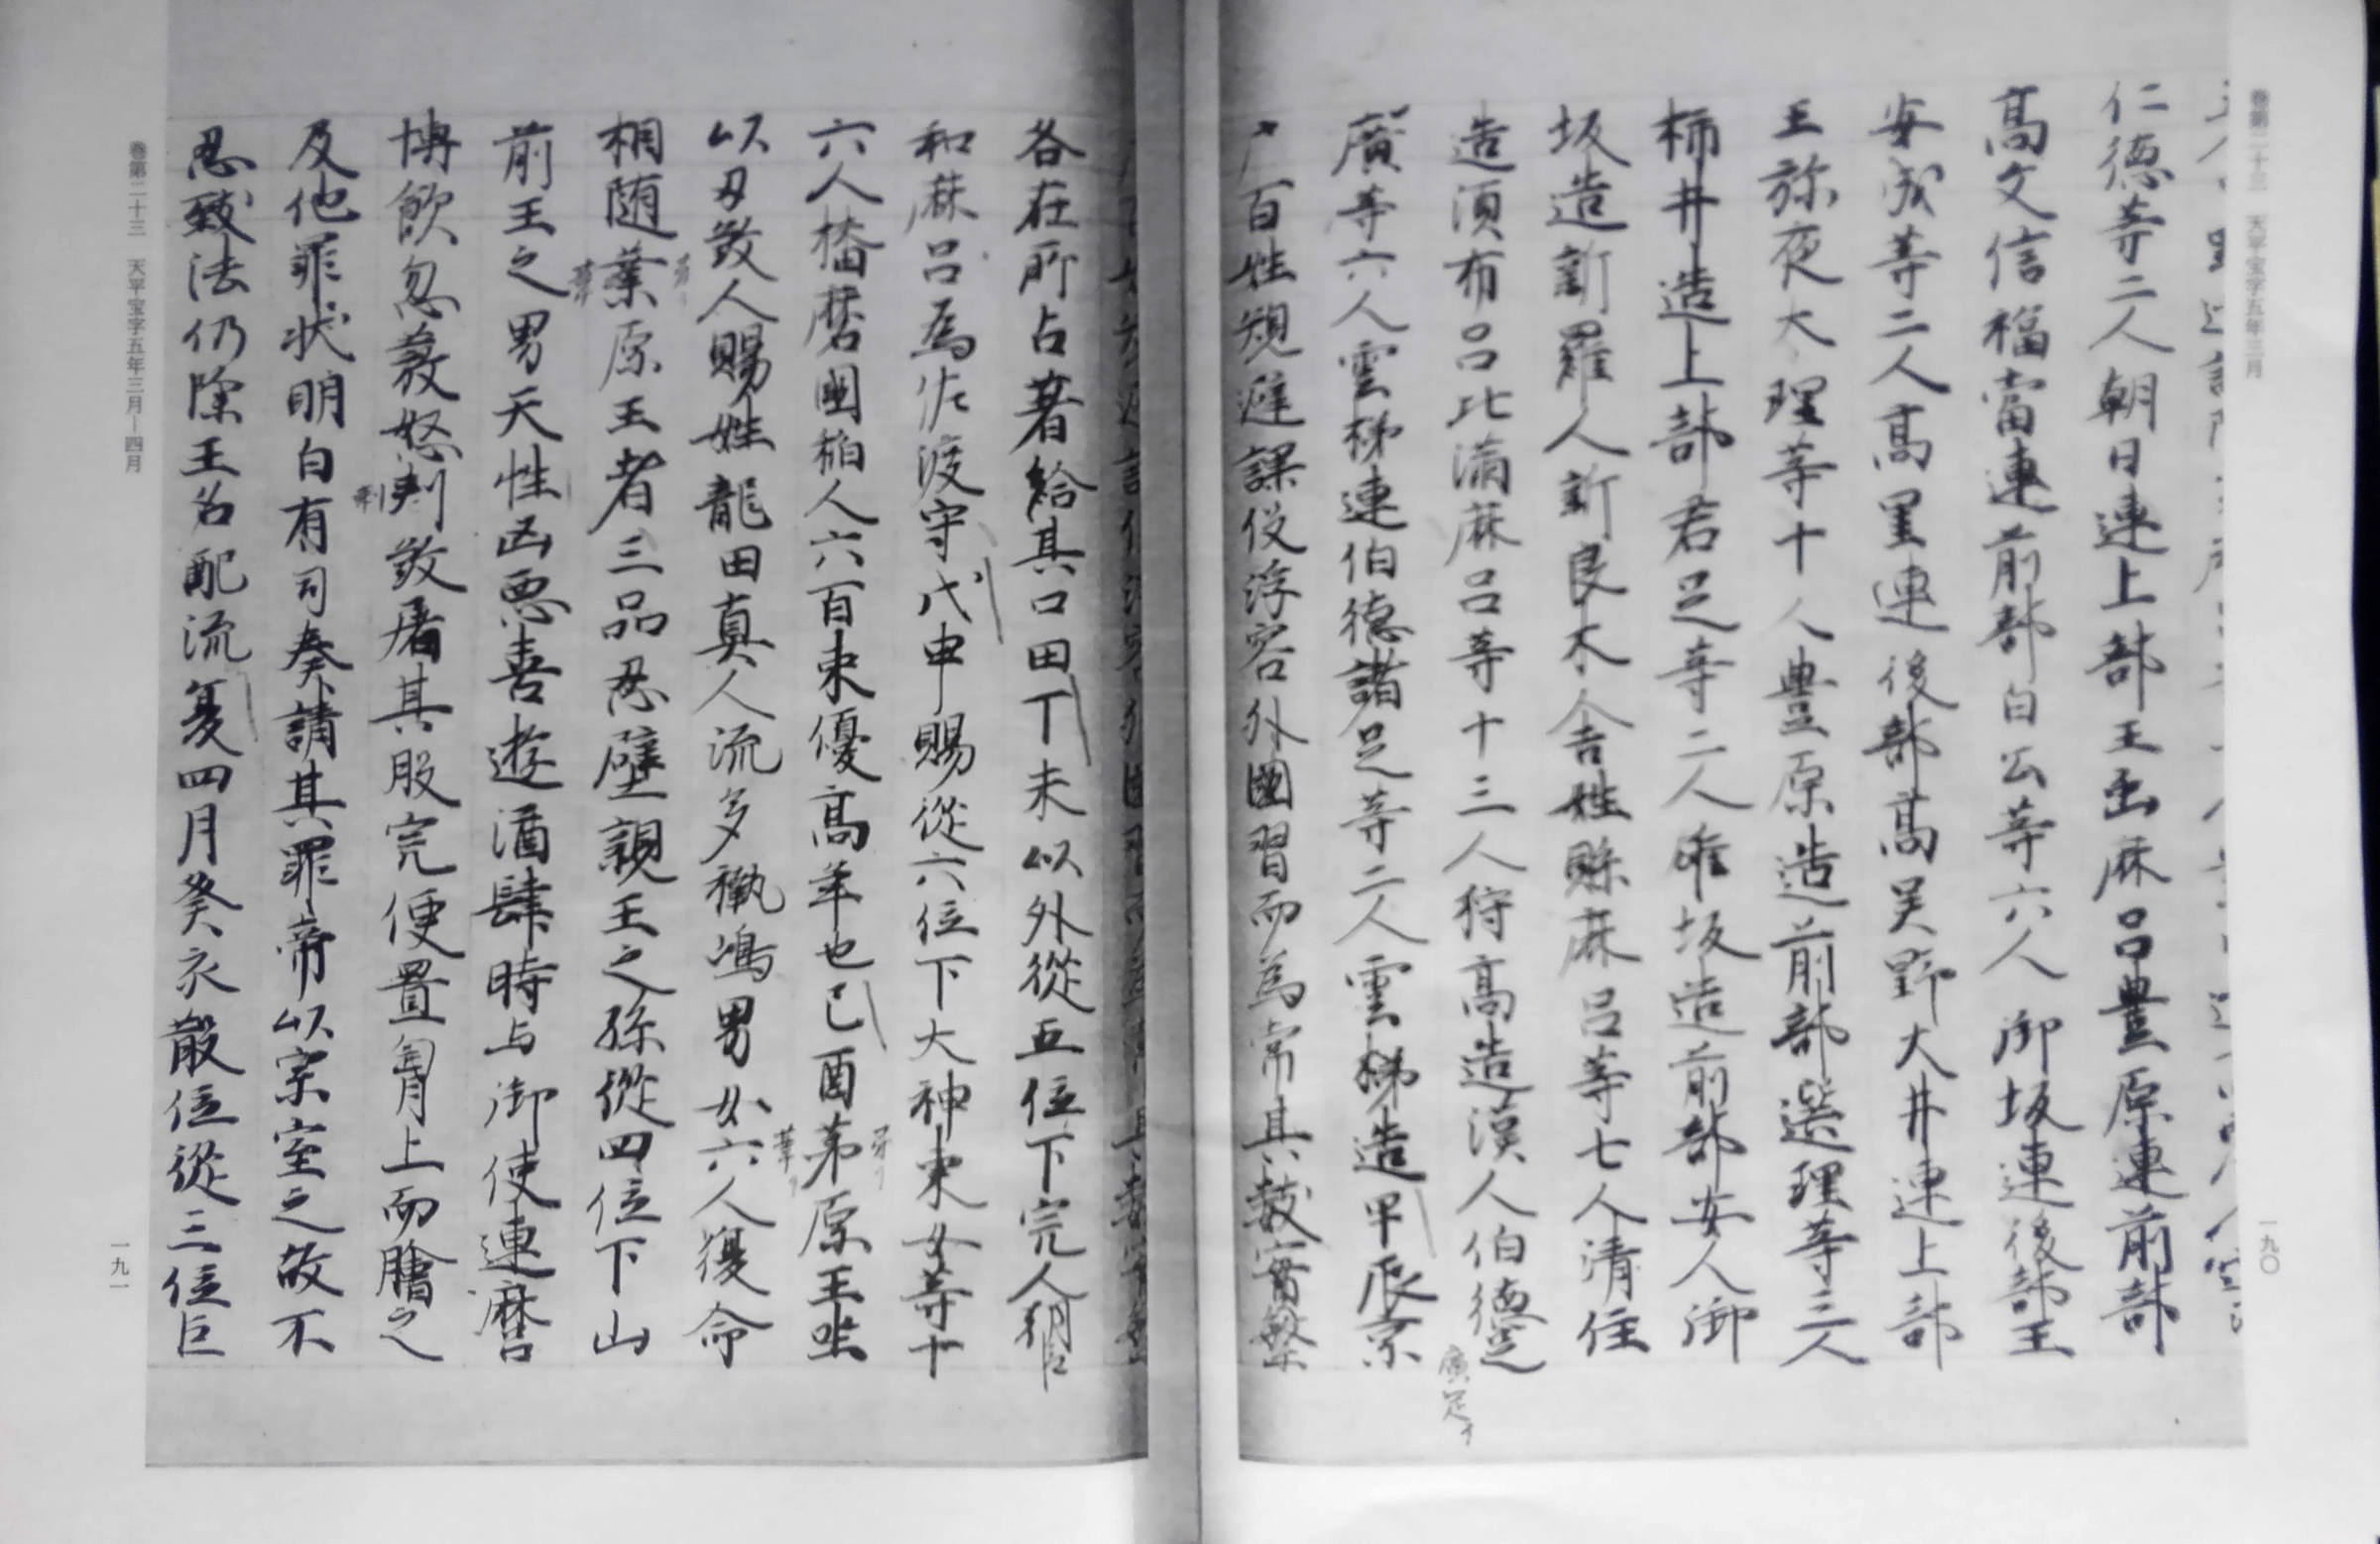 卷第二十三　天平宝字五年三月
仁德等二人朝日連上部王虫麻呂豊原連前部
高文信福當連前部白公等六人御坂連後部王
安成等二人高里連後部高吴野大井連上部
王弥夜大理等十人豊原造前部選理等三人
柿井造上部君足等二人雄坂造前部安人御
坂造新羅人新良木舎姓縣麻呂等七人清住
造須布呂比滿麻呂等十三人狩高造漢人伯德
廣足
廣等六人雲梯連伯德諸足等二人雲梯造甲辰京
戶百姓規避課役浮宕外國習而為常其數寔繁
一九〇
各在所占著給其口田丁未以外從五位下完人朝臣
和麻呂爲佐渡守戊申賜從六位下大神東女等十
六人播磨國稲人六百束優高年也己酉茅原王坐
以刃殺人賜姓龍田真人流多褹嶋男女六人復命
相随葦原王者三品忍壁親王之孫從四位下山
前王之男天性凶悪喜遊酒肆時与御使連麿
博飲忽發怒刺殺屠其股完便置胷上而膾之
及他罪状明白有司奏請其罪帝以宗室之故不
忍致法仍除王名配流夏四月癸亥散位從三位巨
卷第二十三　天平宝字五年三月―四月
一九一